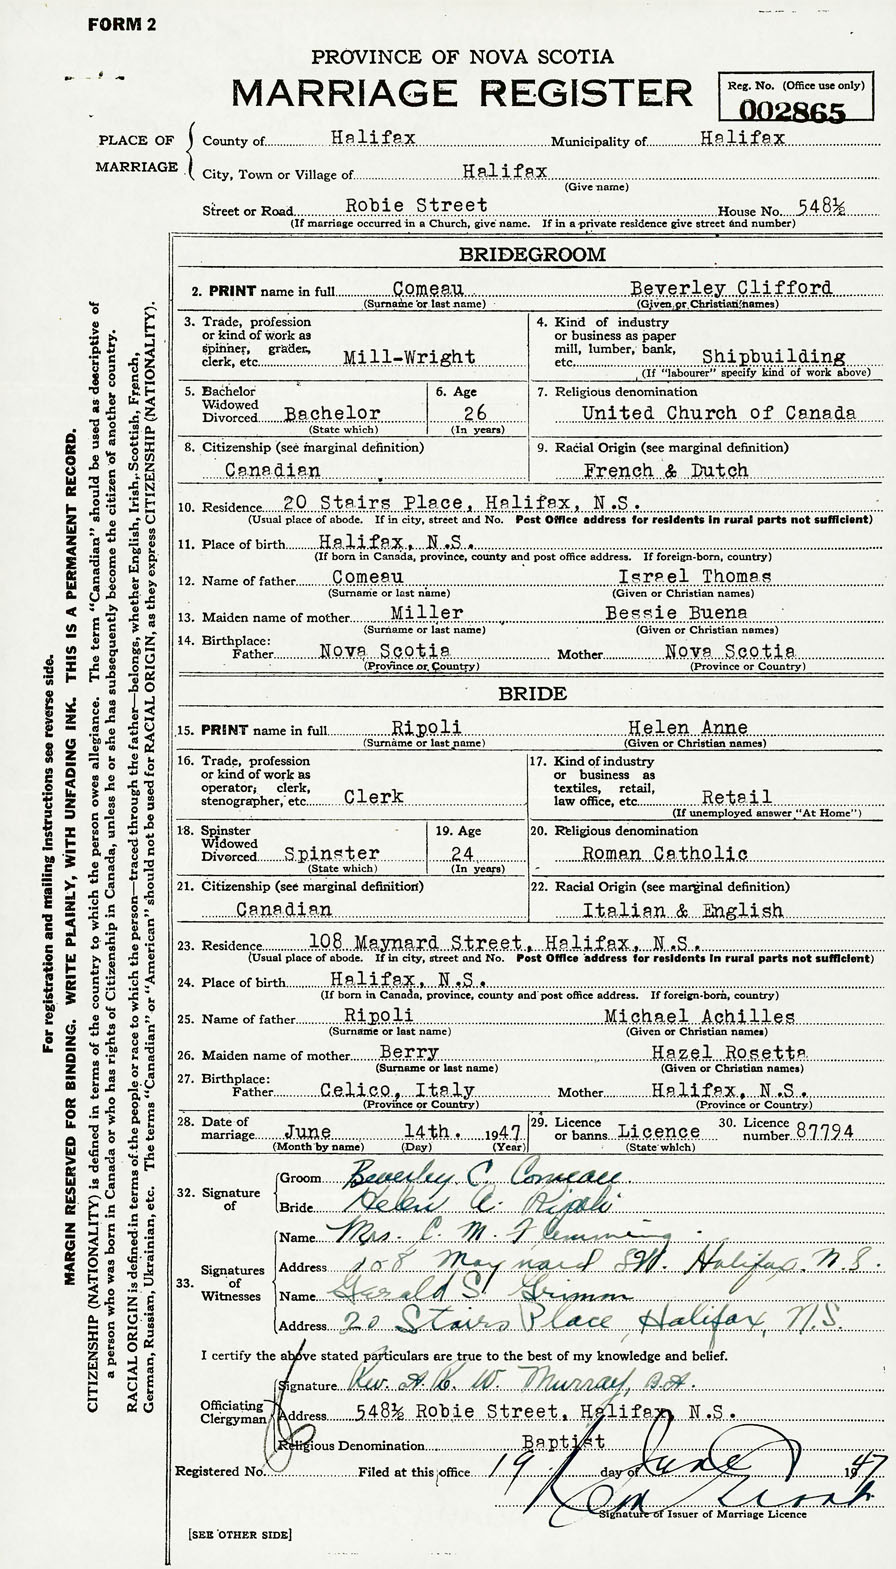 FORM 2
PROVINCE OF NOVA SCOTIA
MARRIAGE REGISTER
Reg. No. (Office use only)
002865
PLACE OF MARRIAGE
County of Halifax Municipality of Halifax
City, Town or Village of Halifax
(Give name)
Street or Road Robie Street House No. 548½
(If marriage occurred in a Church, give name. If in a private residence give street and number)
BRIDEGROOM
2. PRINT name in full Comeau Beverley Clifford
(Surname or last name) (Given or Christian names)
3. Trade, profession
or kind of work as
spinner, grader,
clerk, etc. Mill-Wright
4. Kind of industry
or business as paper
mill, lumber, bank,
etc. Shipbuilding
(If "labourer" specify kind of work above)
5. Bachelor
Widowed
Divorced Bachelor
(State which)
6. Age
26
(In years)
7. Religious denomination
United Church of Canada
8. Citizenship (see marginal definition)
Canadian
9. Racial Origin (see marginal definition)
French & Dutch
10. Residence 20 Stairs Place, Halifax, N.S.
(Usual place of abode. If in city, street and No. Post Office address for residents in rural parts not sufficient)
11. Place of birth Halifax, N.S.
(If born in Canada, province, county and post office address. If foreign-born, country)
12. Name of father Comeau Israel Thomas
(Surname or last name) (Given or Christian names)
13. Maiden name of mother Miller Bessie Buena
(Surname or last name) (Given or Christian names)
14. Birthplace:
Father Nova Scotia Mother Nova Scotia
(Province or Country) (Province or Country)
BRIDE
15. PRINT name in full Ripoli Helen Anne
(Surname or last name) (Given or Christian names)
16. Trade, profession
or kind of work as
operator, clerk,
stenographer, etc. Clerk
17. Kind of industry
or business as
textiles, retail,
law office, etc. Retail
(If unemployed answer "At Home")
18. Spinster
Widowed
Divorced Spinster
(State which)
19. Age
24
(In years)
20. Religious denomination
Roman Catholic
21. Citizenship (see marginal definition)
Canadian
22. Racial Origin (see marginal definition)
Italian & English
23. Residence 108 Maynard Street, Halifax, N.S.
(Usual place of abode. If in city, street and No. Post Office address for residents in rural parts not sufficient)
24. Place of birth Halifax, N.S.
(If born in Canada, province, county and post office address. If foreign-born, country)
25. Name of father Ripoli Michael Achilles
(Surname or last name) (Given or Christian names)
26. Maiden name of mother Berry Hazel Rosetta
(Surname or last name) (Given or Christian names)
27. Birthplace:
Father Celico, Italy Mother Halifax, N.S.
(Province or Country) (Province or Country)
28. Date of
marriage June 14th. 1947
(Month by name) (Day) (Year)
29. Licence
or banns Licence
(State which)
30. Licence
number 87794
32. Signature of
Groom Beverley C. Comeau
Bride Helen A. Ripoli
33. Signatures of Witnesses
Name Mrs. C. M. Flemming
Address 108 Maynard St. Halifax, N.S.
Name Gerald S. Grimm
Address 20 Stairs Place, Halifax, N.S.
I certify the above stated particulars are true to the best of my knowledge and belief.
Officiating Clergyman
Signature Rev. A. K. W. Murray, B.A.
Address 548½ Robie Street, Halifax, N.S.
Religious Denomination Baptist
Registered No. Filed at this office 19 day of June 1947
Signature of Issuer of Marriage Licence
[SEE OTHER SIDE]
For registration and mailing instructions see reverse side.
MARGIN RESERVED FOR BINDING. WRITE PLAINLY, WITH UNFADING INK. THIS IS A PERMANENT RECORD.
CITIZENSHIP (NATIONALITY) is defined in terms of the country to which the person owes allegiance. The term "Canadian" should be used as descriptive of
a person who was born in Canada or who has rights of Citizenship in Canada, unless he or she has subsequently become the citizen of another country.
RACIAL ORIGIN is defined in terms of the people or race to which the person—traced through the father—belongs, whether English, Irish, Scottish, French,
German, Russian, Ukrainian, etc. The terms "Canadian" or "American" should not be used for RACIAL ORIGIN, as they express CITIZENSHIP (NATIONALITY).